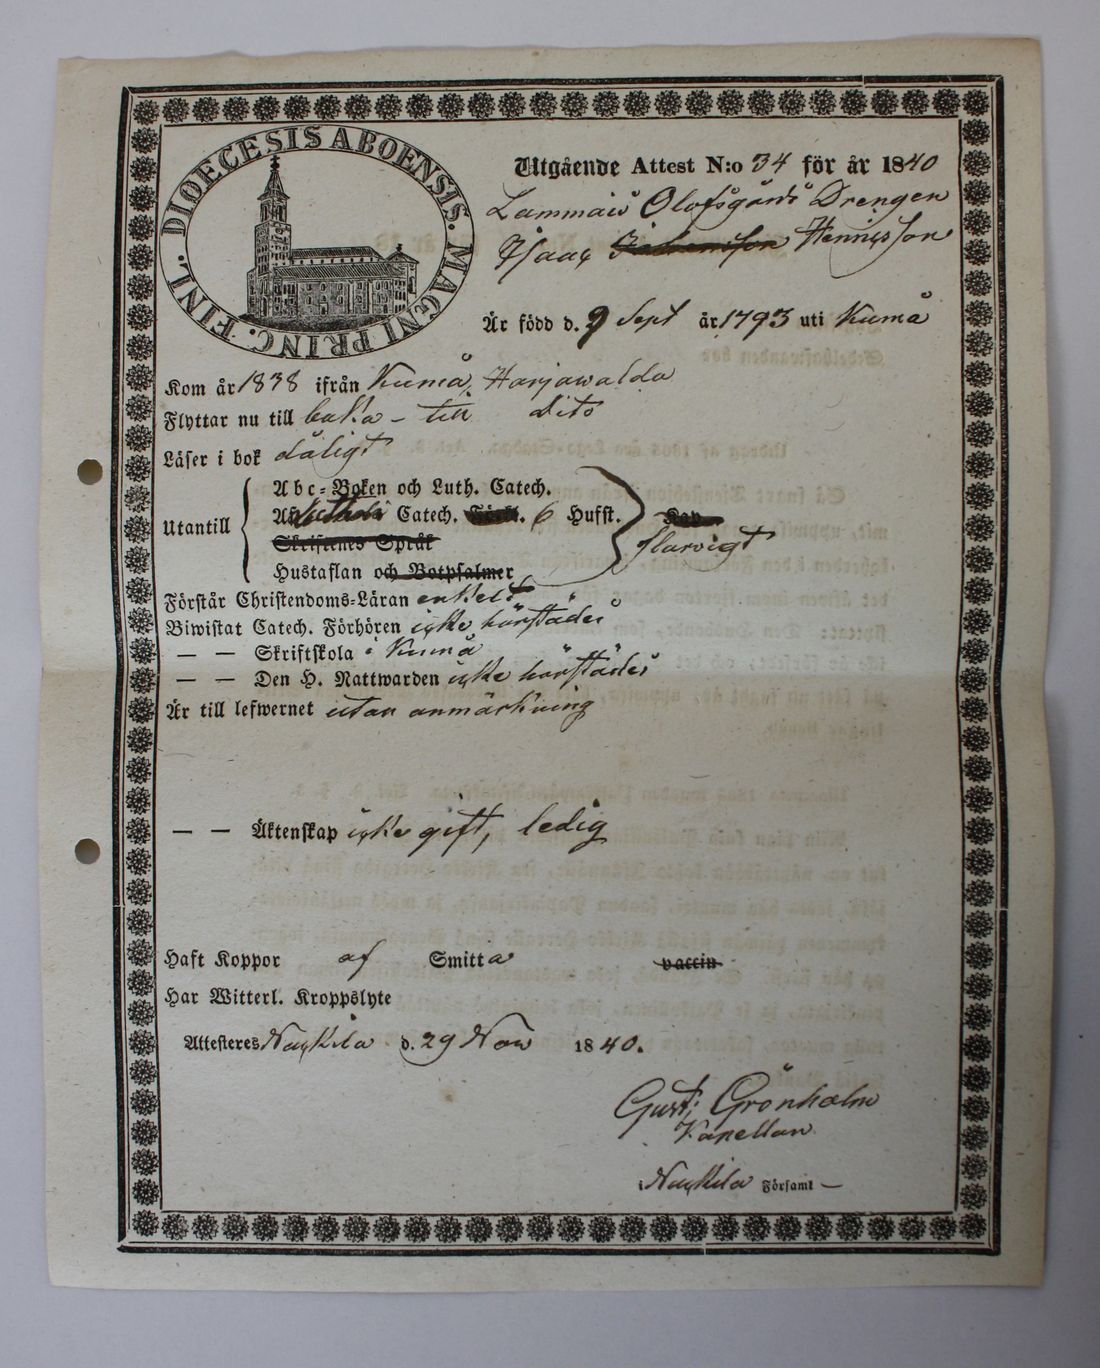 DIOECESIS ABOENSIS. MAGNI PRINC. FINL.
Utgående Attest N:o 34 för år 1840
Lammais Olofsgårds Drengen
Isaac Henricsson
Är född d. 9 Sept år 1793 uti Kumå
Kom år 1838 ifrån Kumå, Harjawalda
Flyttar nu till baka - till dito
Läser i bok dåligt
Utantill
Abc-Boken och Luth. Catech.
Catech. 6 Hufst.
Skriftenes Språk
slarvigt
Hustaflan och Botpsalmer
Förstår Christendoms-Läran enkelt
Biwistat Catech. Förhören icke härstädes
— — Skriftskola i Kumå
— — Den H. Nattwarden icke härstädes
Är till lefwernet utan anmärkning
— — Äktenskap icke gift, ledig
Haft Koppor af Smitta vaccin
Har Witterl. Kroppslyte
Attesteres Nackila d. 29 Nov 1840.
Gust: Grönholm
Kapellan
i Nackila Församl —